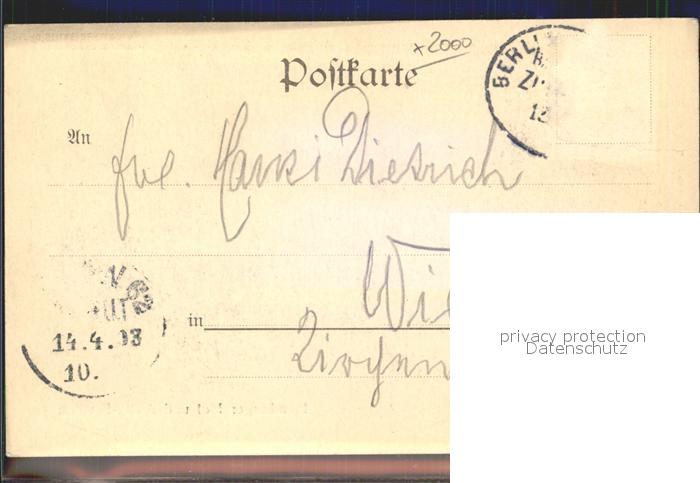 +2000
Postkarte
BERLI
Z
13
An
Frl. Hansi Dietrich
Wi
in
14.4.03
10.
privacy protection
Datenschutz